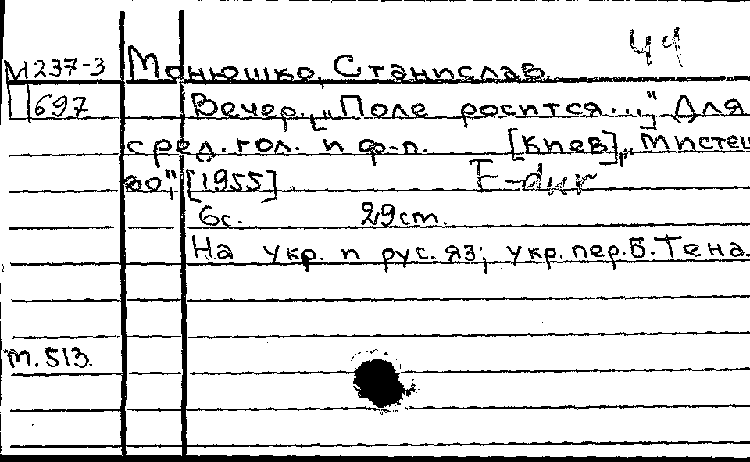 44
М237-3 Монюшко, Станислав.
697 Вечер. ["Поле росится..."] Для
сред. гол. и ф-п. [Киев], "Мистец
во", [1955]. E-dur
6с. 29см.
На укр. и рус. яз; укр. пер. Б. Тена.
м. 513.